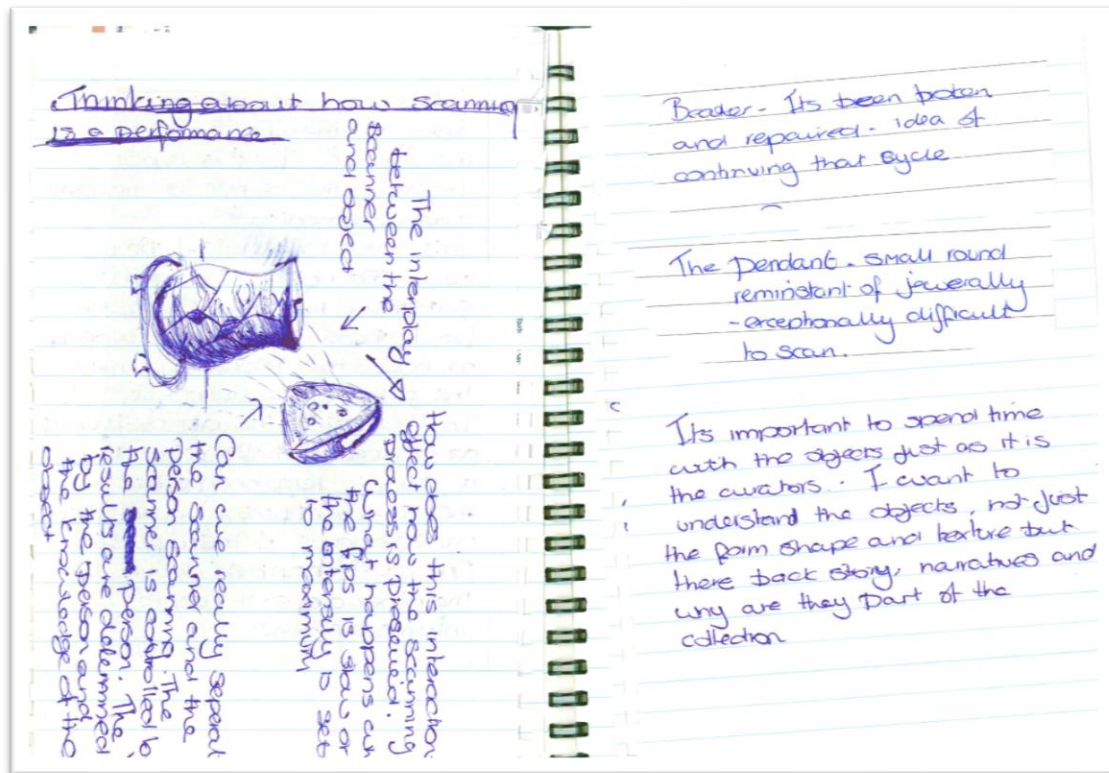 Thinking about how scanning
is a performance
The interplay
between the
Scanner
and object
How does this interaction
affect how the scanning
process is
What happens
the fps is slow or
the intensity is set
to maximum
Can we really seperat
the scanner and the
person scanning. The
scanner is controlled b
the person. The
results are determined
by the person and
the knowledge of the
object
Beaker - Its been broken
and repaired - idea of
continuing that cycle
The Pendant. small round
reministant of jewerally
- exceptionally difficult
to scan.
Its important to spend time
with the objects just as it is
the curators. I want to
understand the objects, not just
the form shape and texture but
there back story, narratives and
why are they part of the
collection